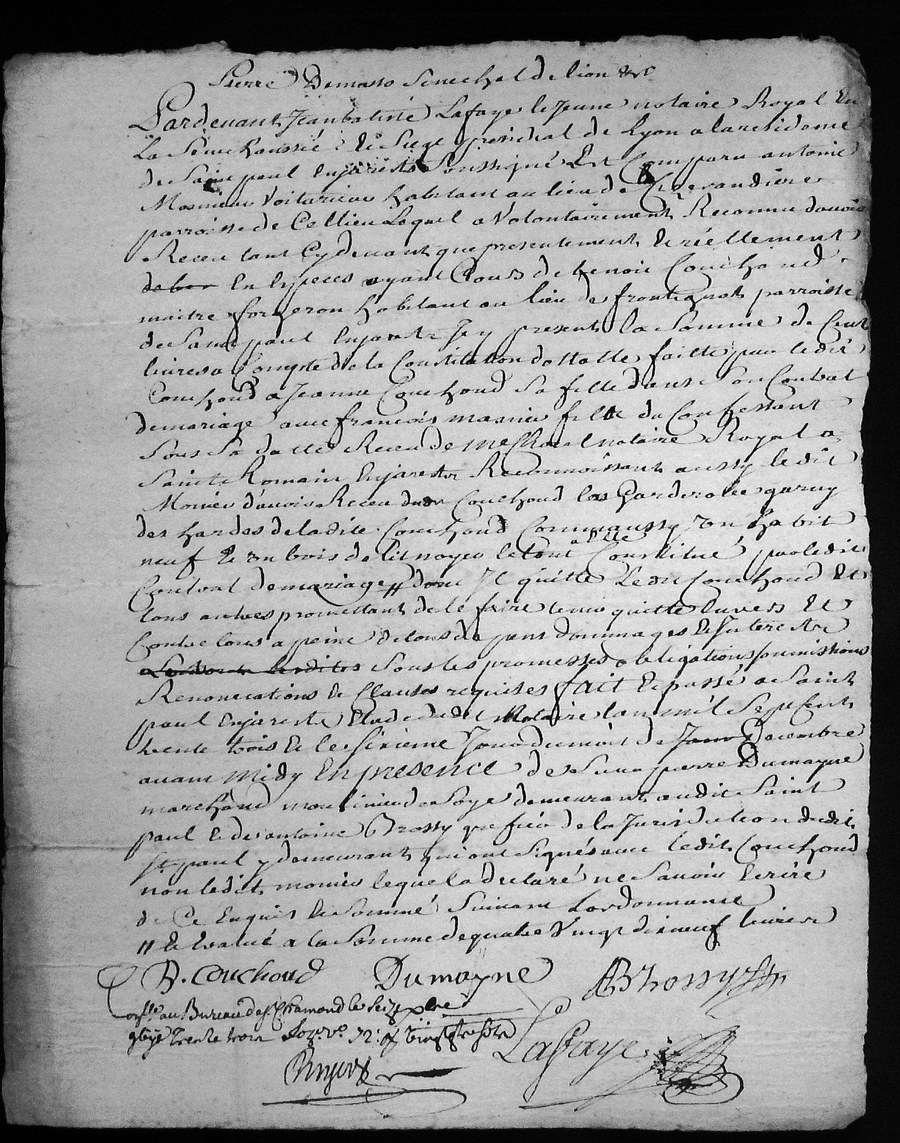 Pierre Demasso Senechal de lion &c
Pardevant Jeanbatiste Lafaye le Jeune notaire Royal En
La Senechaussée & Siege presidial de Lyon a la residence
de Saint paul En jareste Soussigné Est Comparu antoine
Mosnier Voiturier habitant au lieu de
parroisse de Cellieu Lequel a Volontairement Reconnu davoir
Receu tant Cy devant que presentement & réellement
En Especes ayant Cours de benoit Couchond
maitre forgeron habitant au lieu de frontignat parroisse
de Saint paul En jarest Icy present la Somme de Cent
livres a Compte de la Constitution dottalle faitte par ledit
Couchond a Jeanne Couchoud Sa fille dans Son Contrat
de mariage avec francois masnier fils du Confessant
Sous Sa datte Receu de Me Choral notaire Royal a
Saint Romain En jarest Reconnoissant aussy ledit
Monier d'avoir Receu dudit Couchoud las Garderobe garny
des hardes de ladite Couchoud Comm'aussy un habit
neuf & un bois de lit noyer le tout a Elle Constitué par ledit
Contrat de mariage // dont Il quitte ledit Couchoud Et
tous autres promettant de le faire tenir quitte Envers Et
Contre tous a peine de tous depens dommages & Interest
Sous les promesses obligations soumissions
Renonciations & Clauses requises fait & passé a Saint
paul En jareste Etude dudit Notaire lan mil Sept Cent
trente trois & le Sixieme Jour du mois de Decembre
avant midy En presence de Sieur pierre Dumayne
marchand moulinier de Soye demeurant audit Saint
paul & de antoine Brossy greffier de la Jurisdiction dudit
St paul y demeurant qui ont Signés avec ledit Couchoud
non ledit monier lequel a declaré ne Savoir Ecrire
de Ce Enquis & Sommé Suivant Lordonnance
// & Evalué a la Somme de quatre Vingt dix neuf livres
B. Couchoud Dumayne ABrossy
au Bureau de St Chamond le Seize xbre
trente trois
Lafaye